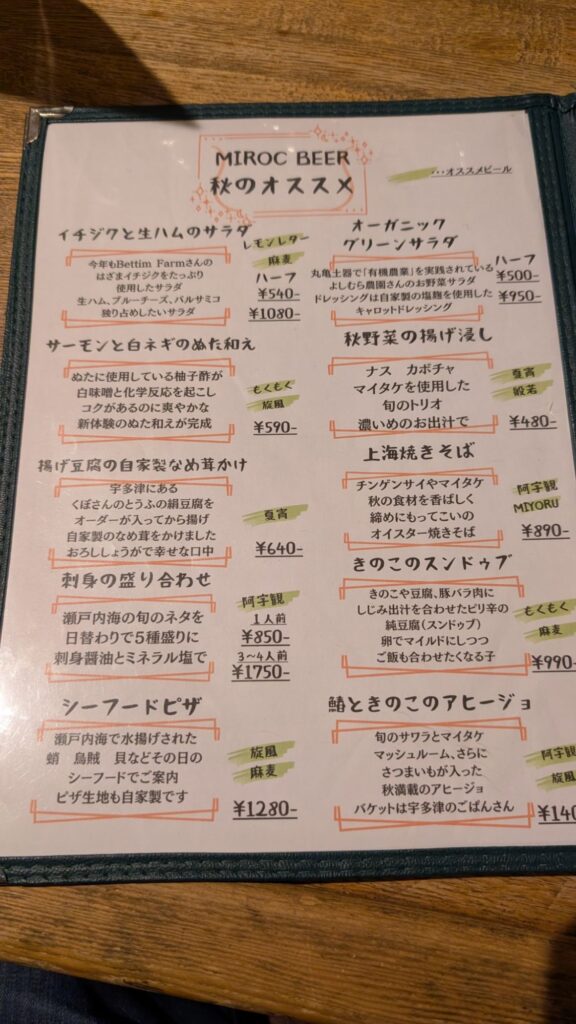 MIROC BEER
秋のオススメ
・・・オススメビール
イチジクと生ハムのサラダ
レモンレター
麻麦
今年もBettim Farmさんの
はざまイチジクをたっぷり
使用したサラダ
生ハム、ブルーチーズ、バルサミコ
独り占めしたいサラダ
ハーフ
¥540-
¥1080-
サーモンと白ネギのぬた和え
ぬたに使用している柚子酢が
白味噌と化学反応を起こし
コクがあるのに爽やかな
新体験のぬた和えが完成
もくもく
旋風
¥590-
揚げ豆腐の自家製なめ茸かけ
宇多津にある
くぼさんのとうふの絹豆腐を
オーダーが入ってから揚げ
自家製のなめ茸をかけました
おろししょうがで幸せな口中
夏宵
¥640-
刺身の盛り合わせ
阿字観
瀬戸内海の旬のネタを
日替わりで5種盛りに
刺身醤油とミネラル塩で
1人前
¥850-
3～4人前
¥1750-
シーフードピザ
瀬戸内海で水揚げされた
蛸 烏賊 貝などその日の
シーフードでご案内
ピザ生地も自家製です
旋風
麻麦
¥1280-
オーガニック
グリーンサラダ
丸亀土器で「有機農業」を実践されている
よしむら農園さんのお野菜サラダ
ドレッシングは自家製の塩麹を使用した
キャロットドレッシング
ハーフ
¥500-
¥950-
秋野菜の揚げ浸し
ナス カボチャ
マイタケを使用した
旬のトリオ
濃いめのお出汁で
夏宵
般若
¥480-
上海焼きそば
チンゲンサイやマイタケ
秋の食材を香ばしく
締めにもってこいの
オイスター焼きそば
阿字観
MIYORU
¥890-
きのこのスンドゥブ
きのこや豆腐、豚バラ肉に
しじみ出汁を合わせたピリ辛の
純豆腐(スンドゥブ)
卵でマイルドにしつつ
ご飯も合わせたくなる子
もくもく
麻麦
¥990-
鰆ときのこのアヒージョ
旬のサワラとマイタケ
マッシュルーム、さらに
さつまいもが入った
秋満載のアヒージョ
バケットは宇多津のごぱんさん
阿字観
旋風
¥140